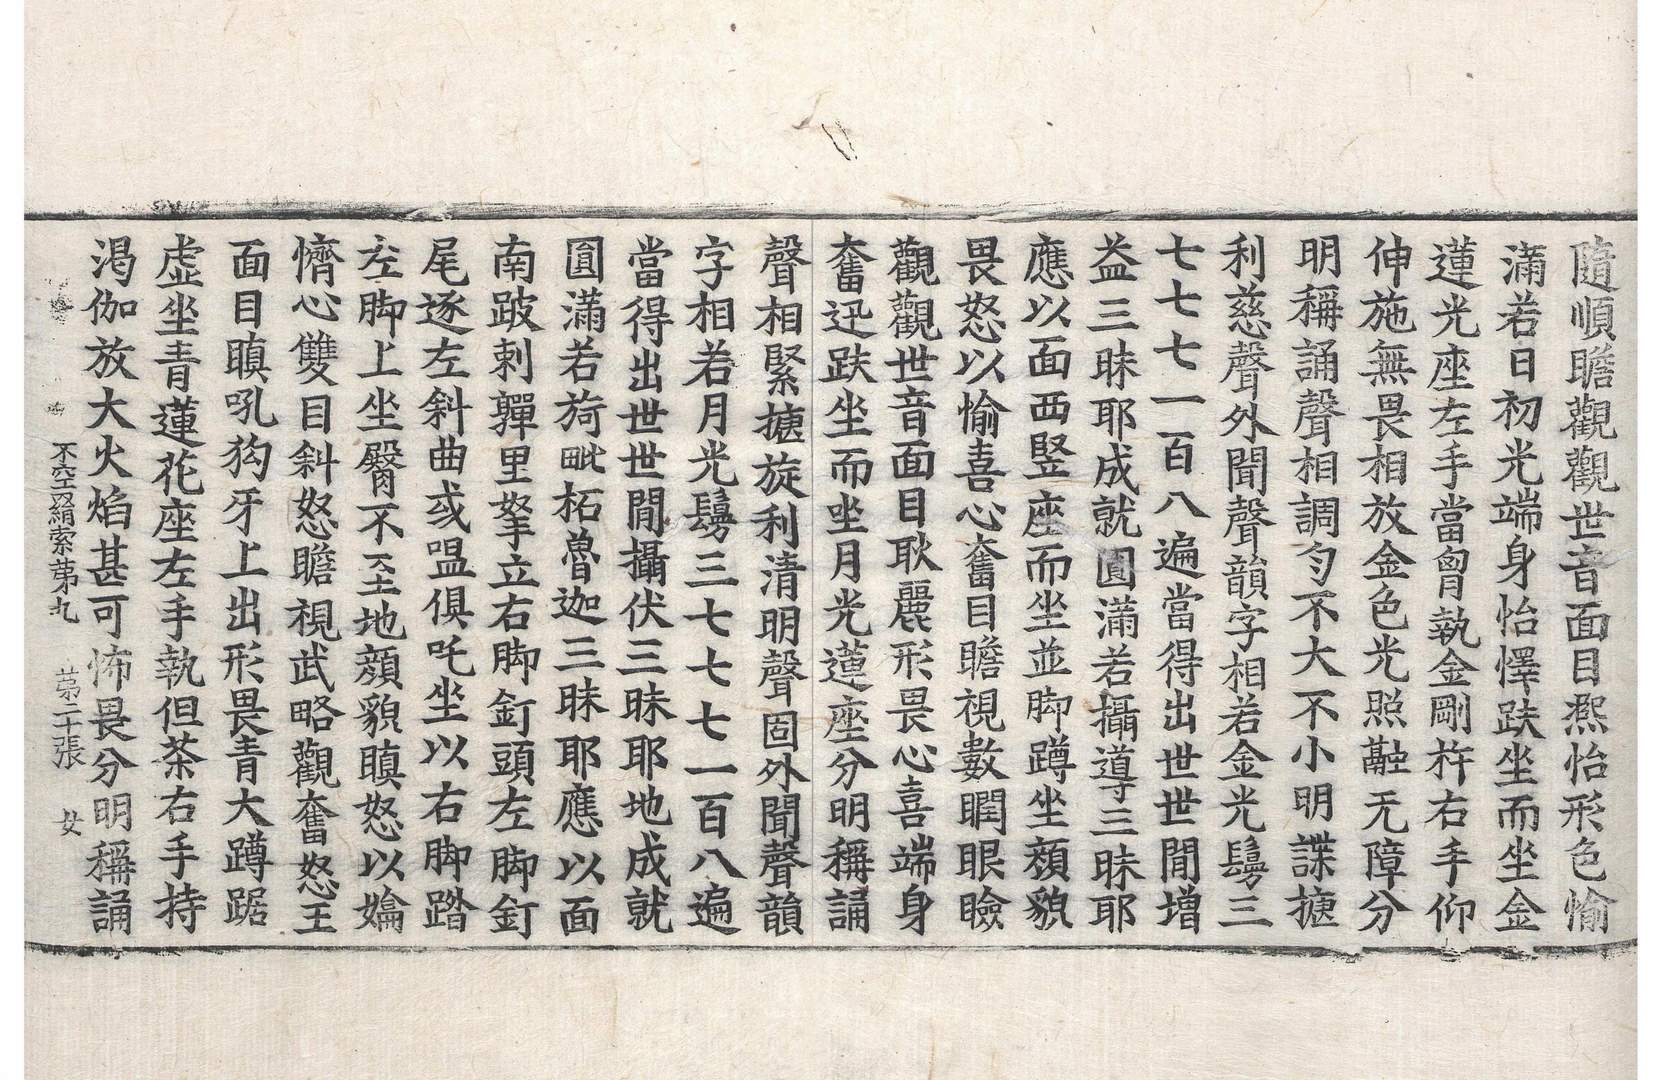 隨順瞻觀觀世音面目熈怡形色愉
滿若日初光端身怡懌趺坐而坐金
蓮光座左手當胷執金剛杵右手仰
伸施無畏相放金色光照融无障分
明稱誦聲相調匀不大不小明諜摭
利慈聲外聞聲韻字相若金光鬘三
七七七一百八遍當得出世世間增
益三昧耶成就圓滿若攝導三昧耶
應以面西竪座而坐並脚蹲坐顔貌
畏怒以愉喜心奮目瞻視數瞤眼瞼
觀觀世音面目耿麗形畏心喜端身
奮迅趺坐而坐月光蓮座分明稱誦
聲相緊摭旋利清明聲固外聞聲韻
字相若月光鬘三七七七一百八遍
當得出世世間攝伏三昧耶地成就
圓滿若旖毗柘魯迦三昧耶應以面
南跛剌嚲里拏立右脚釘頭左脚釘
尾逐左斜曲或嗢俱吒坐以右脚踏
左脚上坐臀不至地顔貌瞋怒以婨
懠心雙目斜怒瞻視武略觀奮怒王
面目瞋吼狗牙上出形畏青大蹲踞
虛坐青蓮花座左手執但茶右手持
渴伽放大火焰甚可怖畏分明稱誦
不空罥索苐九　苐二十張　女